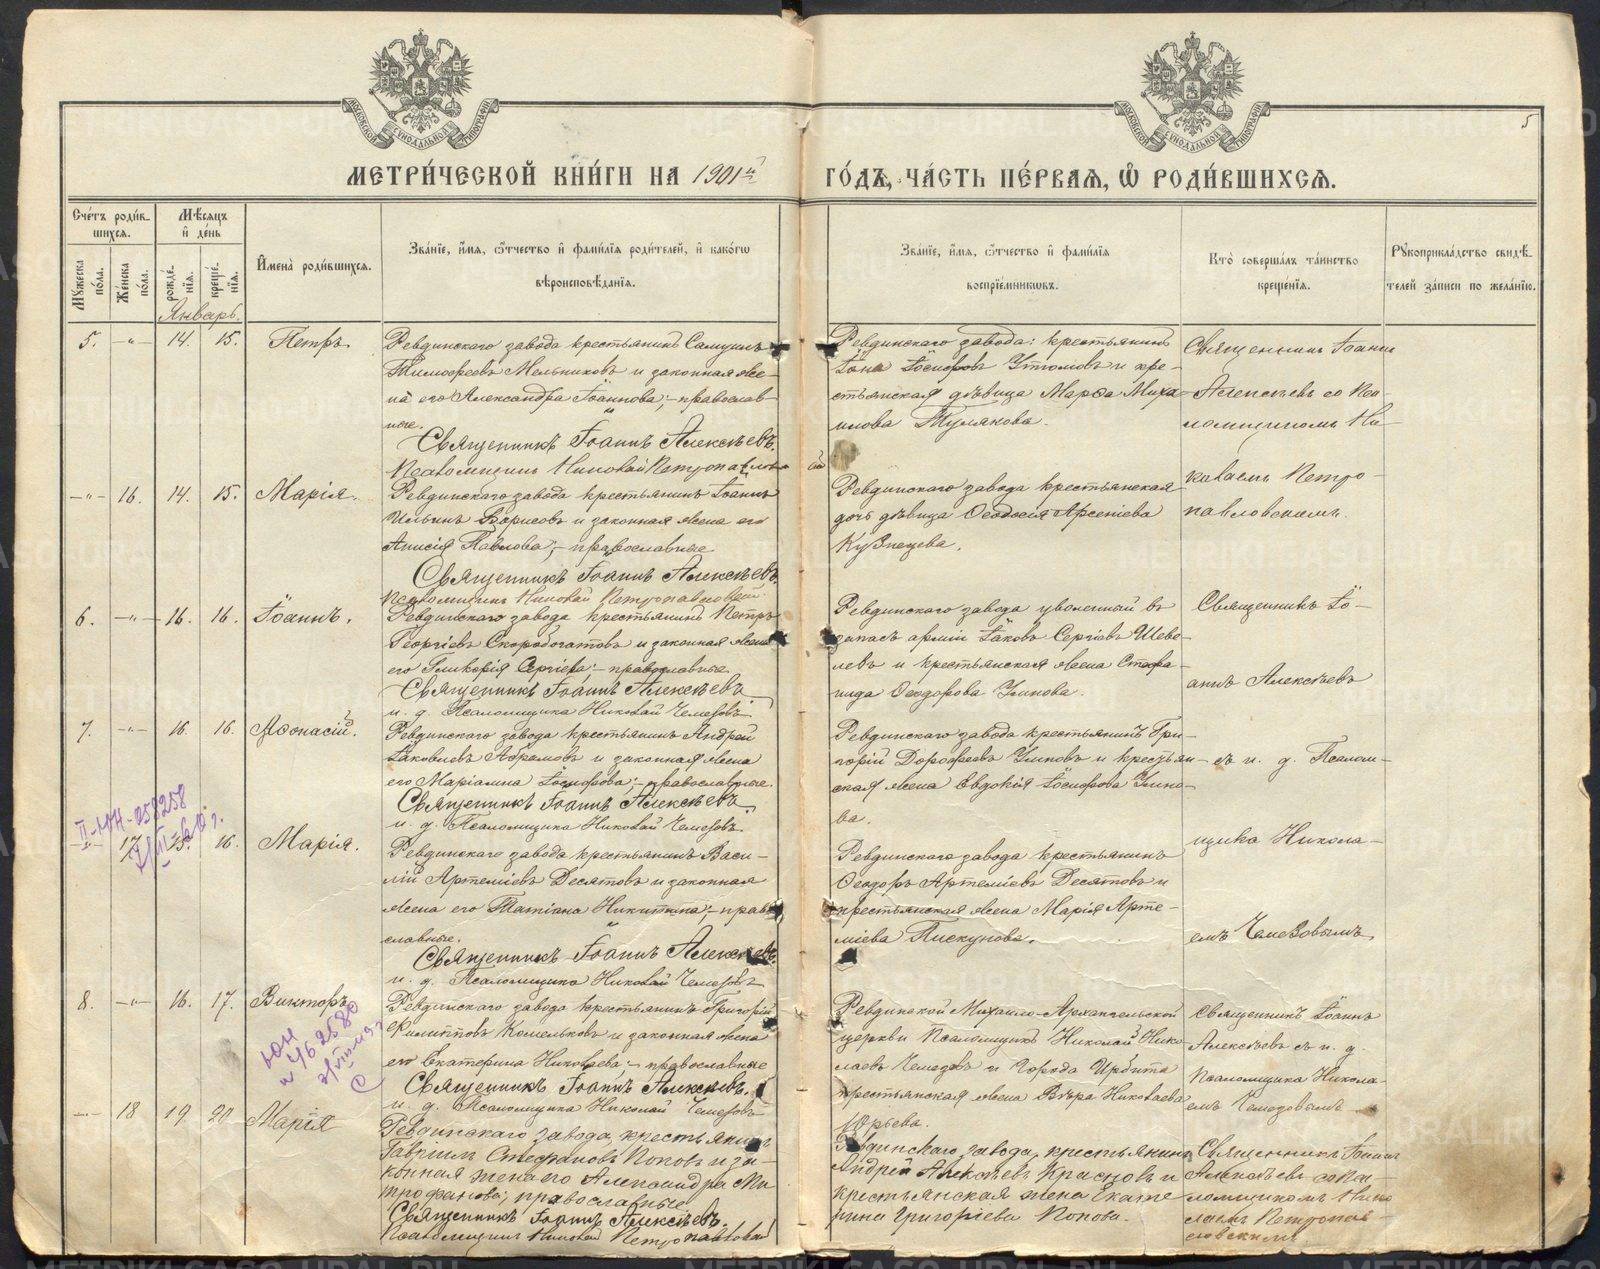 МОСКОВСКОЙ СѴНОДАЛЬНОЙ ТИПОГРАФІИ
МОСКОВСКОЙ СѴНОДАЛЬНОЙ ТИПОГРАФІИ
5
МЕТРИ́ЧЕСКОЙ КНИ́ГИ НА 1901й
ГО́ДЪ, ЧА́СТЬ ПЕ́РВАѦ, Ѽ РОДИ́ВШИХСѦ.
Сче́тъ роди́в-
шихсѧ.
Мѣ́сѧцъ
и҆ де́нь
Мꙋ́жеска по́ла.
Же́нска по́ла.
рожде́нїѧ.
креще́нїѧ.
И҆мена̀ роди́вшихсѧ.
Зва́нїе, и҆́мѧ, ѻ҆́тчество и҆ фами́лїѧ роди́телей, и҆ како́гѡ
вѣроисповѣ́данїѧ.
Зва́нїе, и҆́мѧ, ѻ҆́тчество и҆ фами́лїѧ
воспрїе́мникѡвъ.
Кто̀ соверша́лъ та́инство
креще́нїѧ.
Рꙋкоприкла́дство свидѣ́-
телей за́писи по жела́нїю.
Январь.
5. -„- 14. 15. Петръ.
Ревдинскаго завода крестьянинъ Самуилъ
Тимофеевъ Мельниковъ и законная же-
на его Александра Іоаннова; - православ-
ные.
Священникъ Іоаннъ Алексѣевъ.
Псаломщикъ Николай Петропавловскій
Ревдинскаго завода: крестьянинъ
Іона Іосифовъ Утюмовъ и кре-
стьянская дѣвица Марѳа Миха-
илова Тулякова.
Священникъ Іоаннъ
Алексѣевъ со Пса-
ломщикомъ Ни-
колаемъ Петро-
павловскимъ.
-„- 16. 14. 15. Марія.
Ревдинскаго завода крестьянинъ Іоаннъ
Ильинъ Борисовъ и законная жена его
Анисія Павлова; - православные.
Священникъ Іоаннъ Алексѣевъ.
Псаломщикъ Николай Петропавловскій.
Ревдинскаго завода крестьянская
дочь дѣвица Ѳеодосія Арсеніева
Кузнецева.
6. -„- 16. 16. Іоаннъ.
Ревдинскаго завода крестьянинъ Петръ
Георгіевъ Скоробогатовъ и законная жена
его Гликерія Сергіева; - православные.
Священникъ Іоаннъ Алексѣевъ
и. д. Псаломщика Николай Чемезовъ.
Ревдинскаго завода уволенный въ
запасъ арміи Іаковъ Сергіевъ Шеве-
левъ и крестьянская жена Стефа-
нида Ѳеодорова Умнова.
Священникъ Іо-
аннъ Алексѣевъ
съ и. д. Псалом-
щика Никола-
емъ Чемезовымъ.
7. -„- 16. 16. Аѳонасій.
Ревдинскаго завода крестьянинъ Андрей
Іаковлевъ Абрамовъ и законная жена
его Маріамна Іосифова; - православные.
Священникъ Іоаннъ Алексѣевъ.
и. д. Псаломщика Николай Чемезовъ.
Ревдинскаго завода крестьянинъ Гри-
горій Дорофеевъ Умновъ и крестьян-
ская жена Евдокія Іосифова Умно-
ва.
-„- 17. 15. 16. Марія.
Ревдинскаго завода крестьянинъ Васи-
лій Артеміевъ Десятовъ и законная
жена его Татіана Никитина; - право-
славные.
Священникъ Іоаннъ Алексѣевъ.
и. д. Псаломщика Николай Чемезовъ
Ревдинскаго завода крестьянинъ
Ѳеодоръ Артеміевъ Десятовъ и
крестьянская жена Марія Арте-
міева Пискунова.
8. -„- 16. 17. Викторъ
Ревдинскаго завода крестьянинъ Григорій
Филипповъ Комельковъ и законная жена
его Екатерина Николаева; - православные
Священникъ Іоаннъ Алексѣевъ.
и. д. Псаломщика Николай Чемезовъ
Ревдинской Михаило-Архангельской
церкви Псаломщикъ Николай Нико-
лаевъ Чемезовъ и города Ирбита
крестьянская жена Вѣра Николаева
Юрьева.
Священникъ Іоаннъ
Алексѣевъ съ и. д.
Псаломщика Никола-
емъ Чемезовымъ
-„- 18 19 20 Марія
Ревдинскаго завода, крестьянинъ
Гавріилъ Стефановъ Поповъ и за-
конная жена его Александра Ми-
трофанова; православные.
Священникъ Іоаннъ Алексѣевъ.
Псаломщикъ Николай Петропавловскій
Ревдинскаго завода, крестьянинъ
Андрей Алексѣевъ Красновъ и
крестьянская жена Екате-
рина Григоріева Попова.
Священникъ Іоаннъ
Алексѣевъ с Пса-
ломщикомъ Нико-
лаемъ Петропав-
ловскимъ.